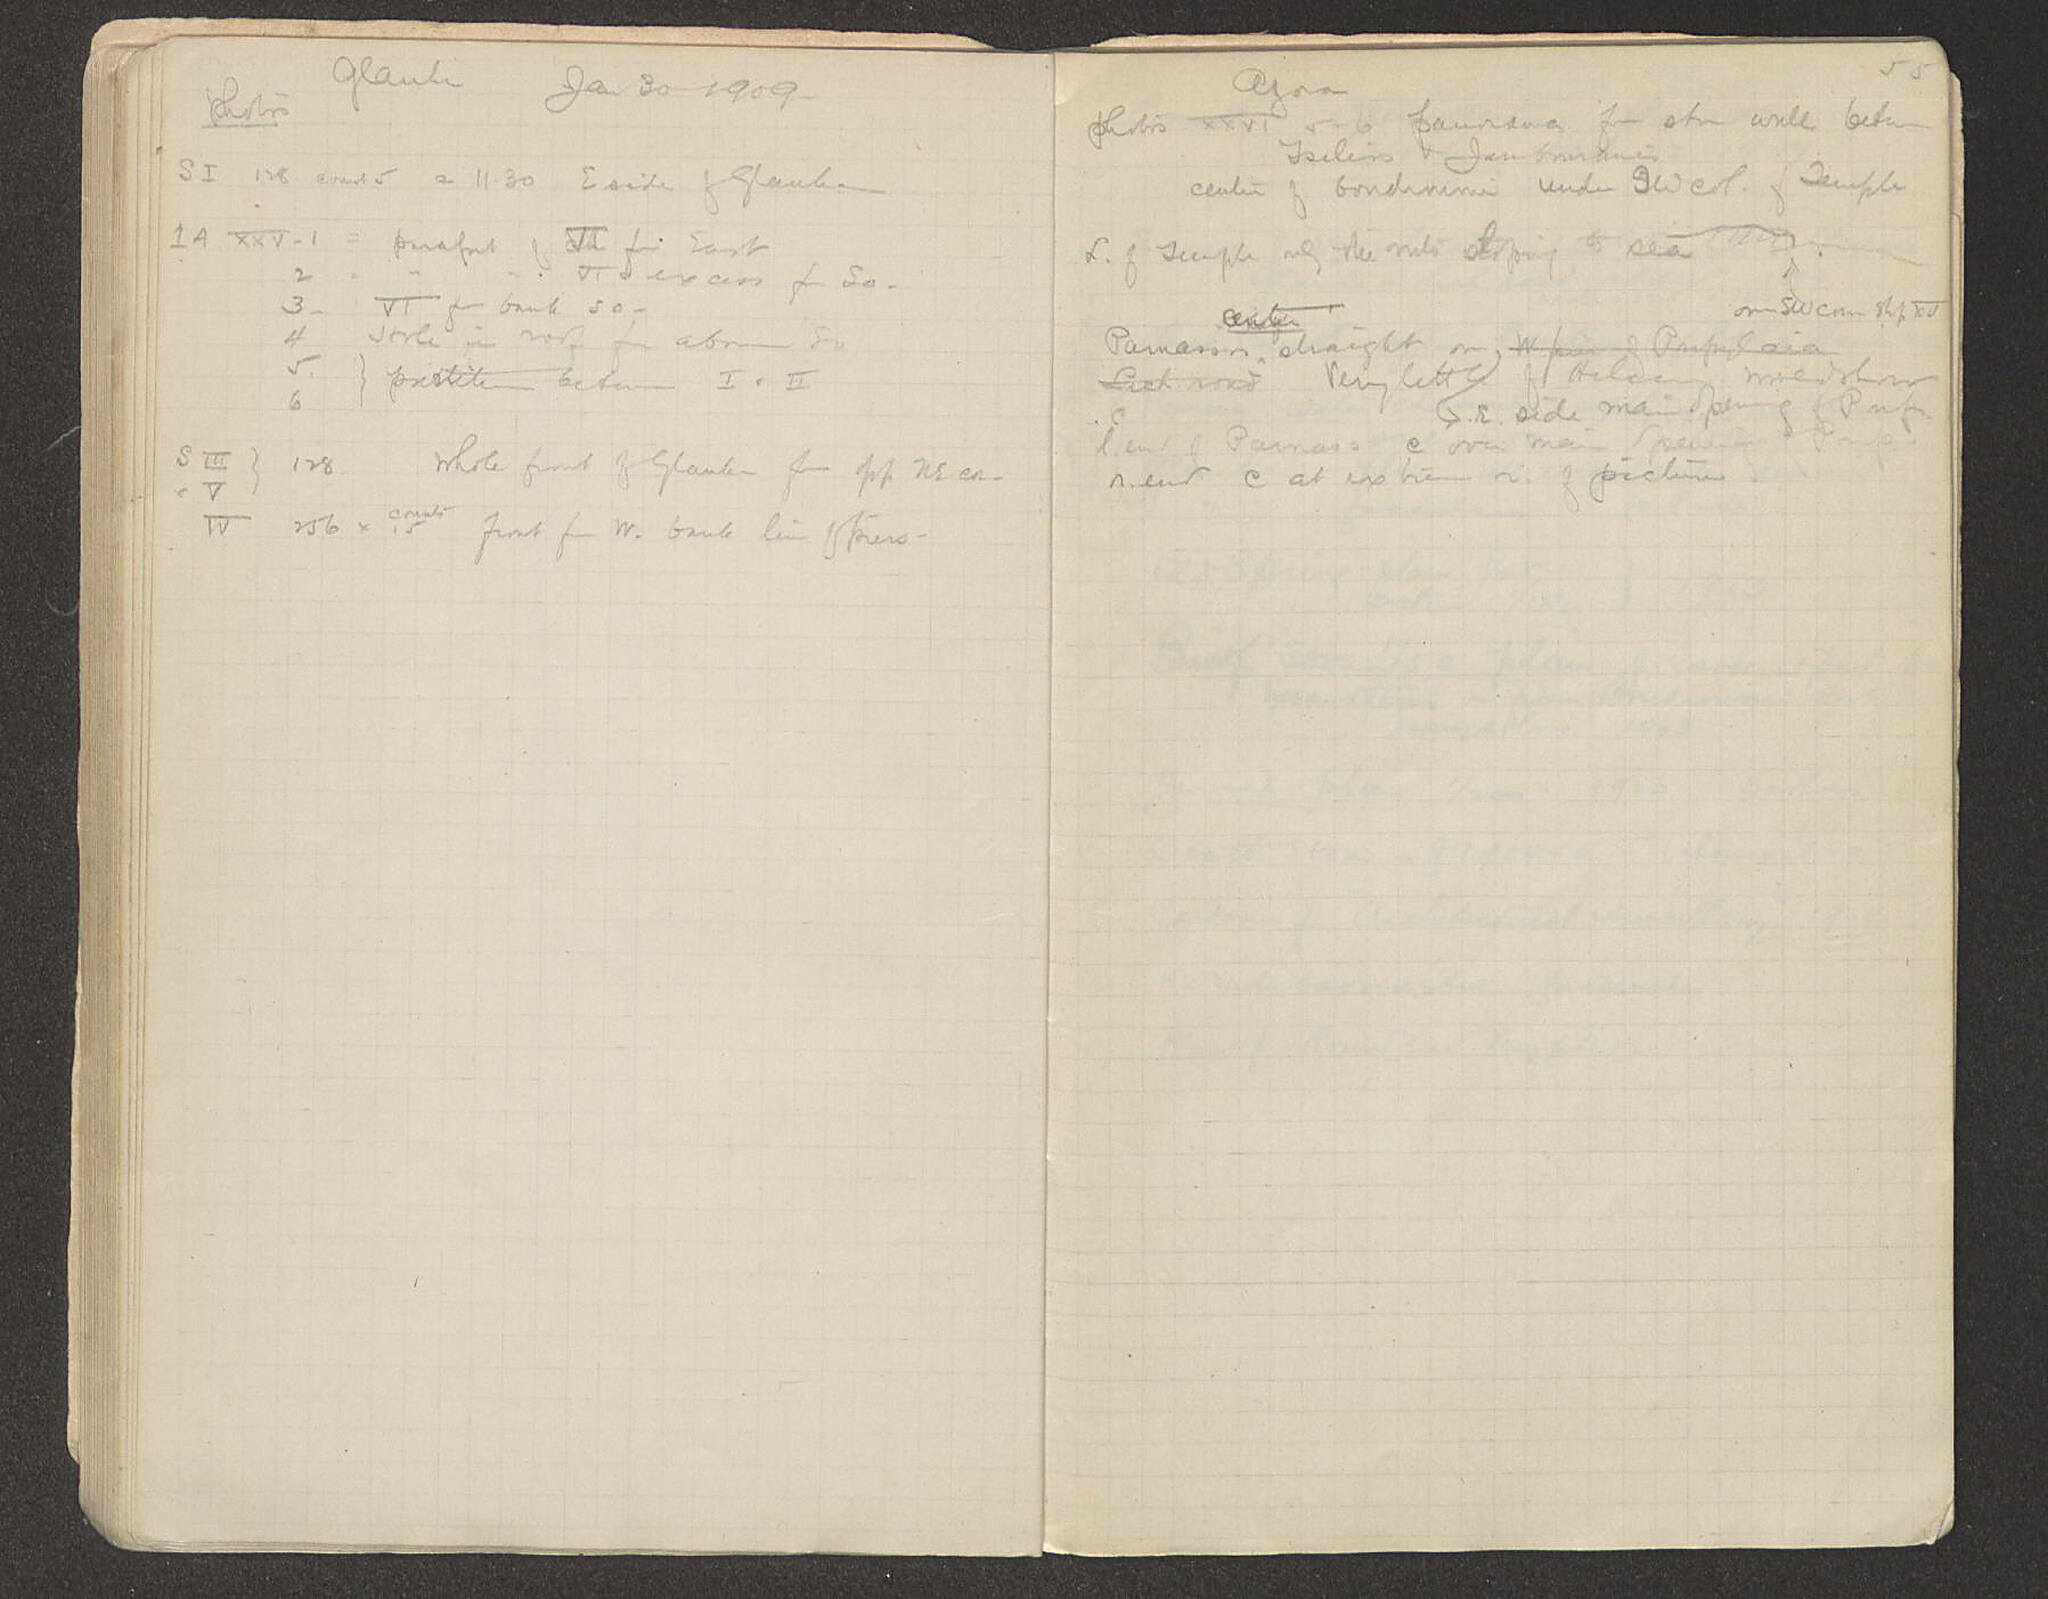 Glauke Jan 30 1909
Photos
S I 128 count 5 a 11.30 E side of Glauke
1A XXV-1 = parapet of VI fr. East
2 " " " VI & excav fr So-
3- VI fr bank so-
4 Hole in roof fr above So
5.
6 } partition between I & II
S III
& V } 128 Whole front of Glauke fr opp NE cor-
IV 256 x counts 15 front fr W. bank line of piers-
55
Agora
Photos XXVI 5-6 panorama fr stone wall between
center of under SW col. of Temple
L. of Temple only the sloping to sea
over SW corn shop XV
center
Parnassos straight on W pier of Propylaia
Lech. road Very little of
r. side main opening of Prop.
l. end of Parnass c over main opening of Prop.
r. end c at extreme r. of picture